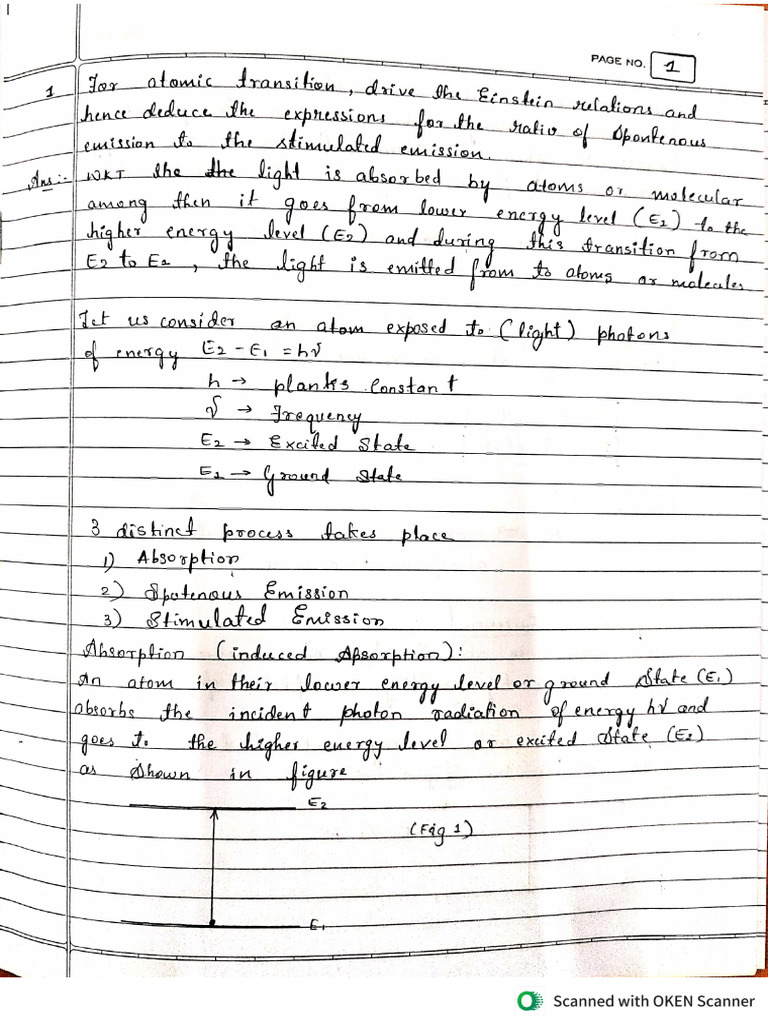 PAGE NO. 1
1 For atomic transition, drive the Einstein relations and
hence deduce the expressions for the ratio of Spontenous
emission to the stimulated emission.
Ans:- WKT the the light is absorbed by atoms or molecular
among then it goes from lower energy level (E1) to the
higher energy level (E2) and during this transition from
E2 to E1, the light is emitted from to atoms or molecules
Let us consider an atom exposed to (light) photons
of energy E2 - E1 = hν
h → planks Constant
ν → Frequency
E2 → Excited State
E1 → Ground State
3 distinct process takes place
1) Absorption
2) Spotenous Emission
3) Stimulated Emission
Absorption (induced Absorption):
An atom in their lower energy level or ground State (E1)
absorbs the incident photon radiation of energy hν and
goes to the higher energy level or excited State (E2)
as Shown in figure
E2
(Fig 1)
E1
Scanned with OKEN Scanner